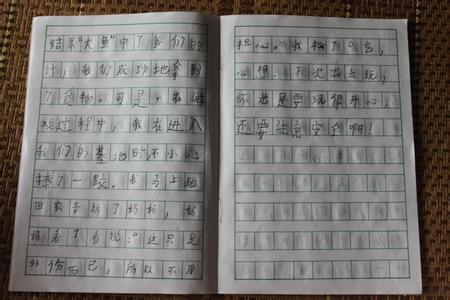 结果“大鱼”中了我们的
计，我们成功地拿到
了食物。可是，在游
戏过程中，我在进入
我们的基地时不小心
摔了一跤。我马上跑
回家告诉了妈妈，妈
妈看了看说：“这只是
外伤而已，所以不用
担心。”我松了口气，
心想：下次出去玩，
不光是要玩得开心，
还要注意安全啊！